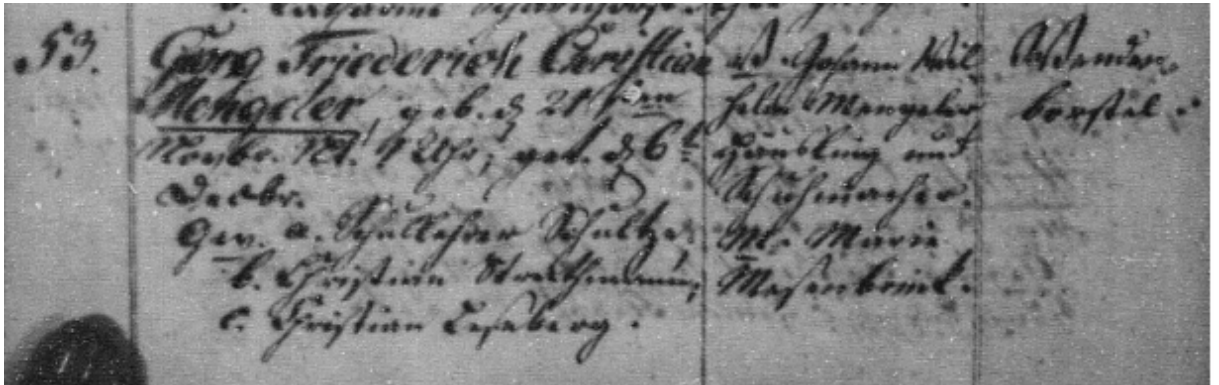 b. Catharine
53. Georg Friederich Christian
Mengeler, geb. d 21sten
Novbr. Nt. 1 Uhr, get. d 6t
Decbr.
Gev. a. Schullehrer Schultze.
b. Christian
c. Christian Leseberg.
Johann Wil-
helm Mengeler
Häusling und
Schuhmacher.
M. Marie
Mesenbrink.
Wenden-
borstel.